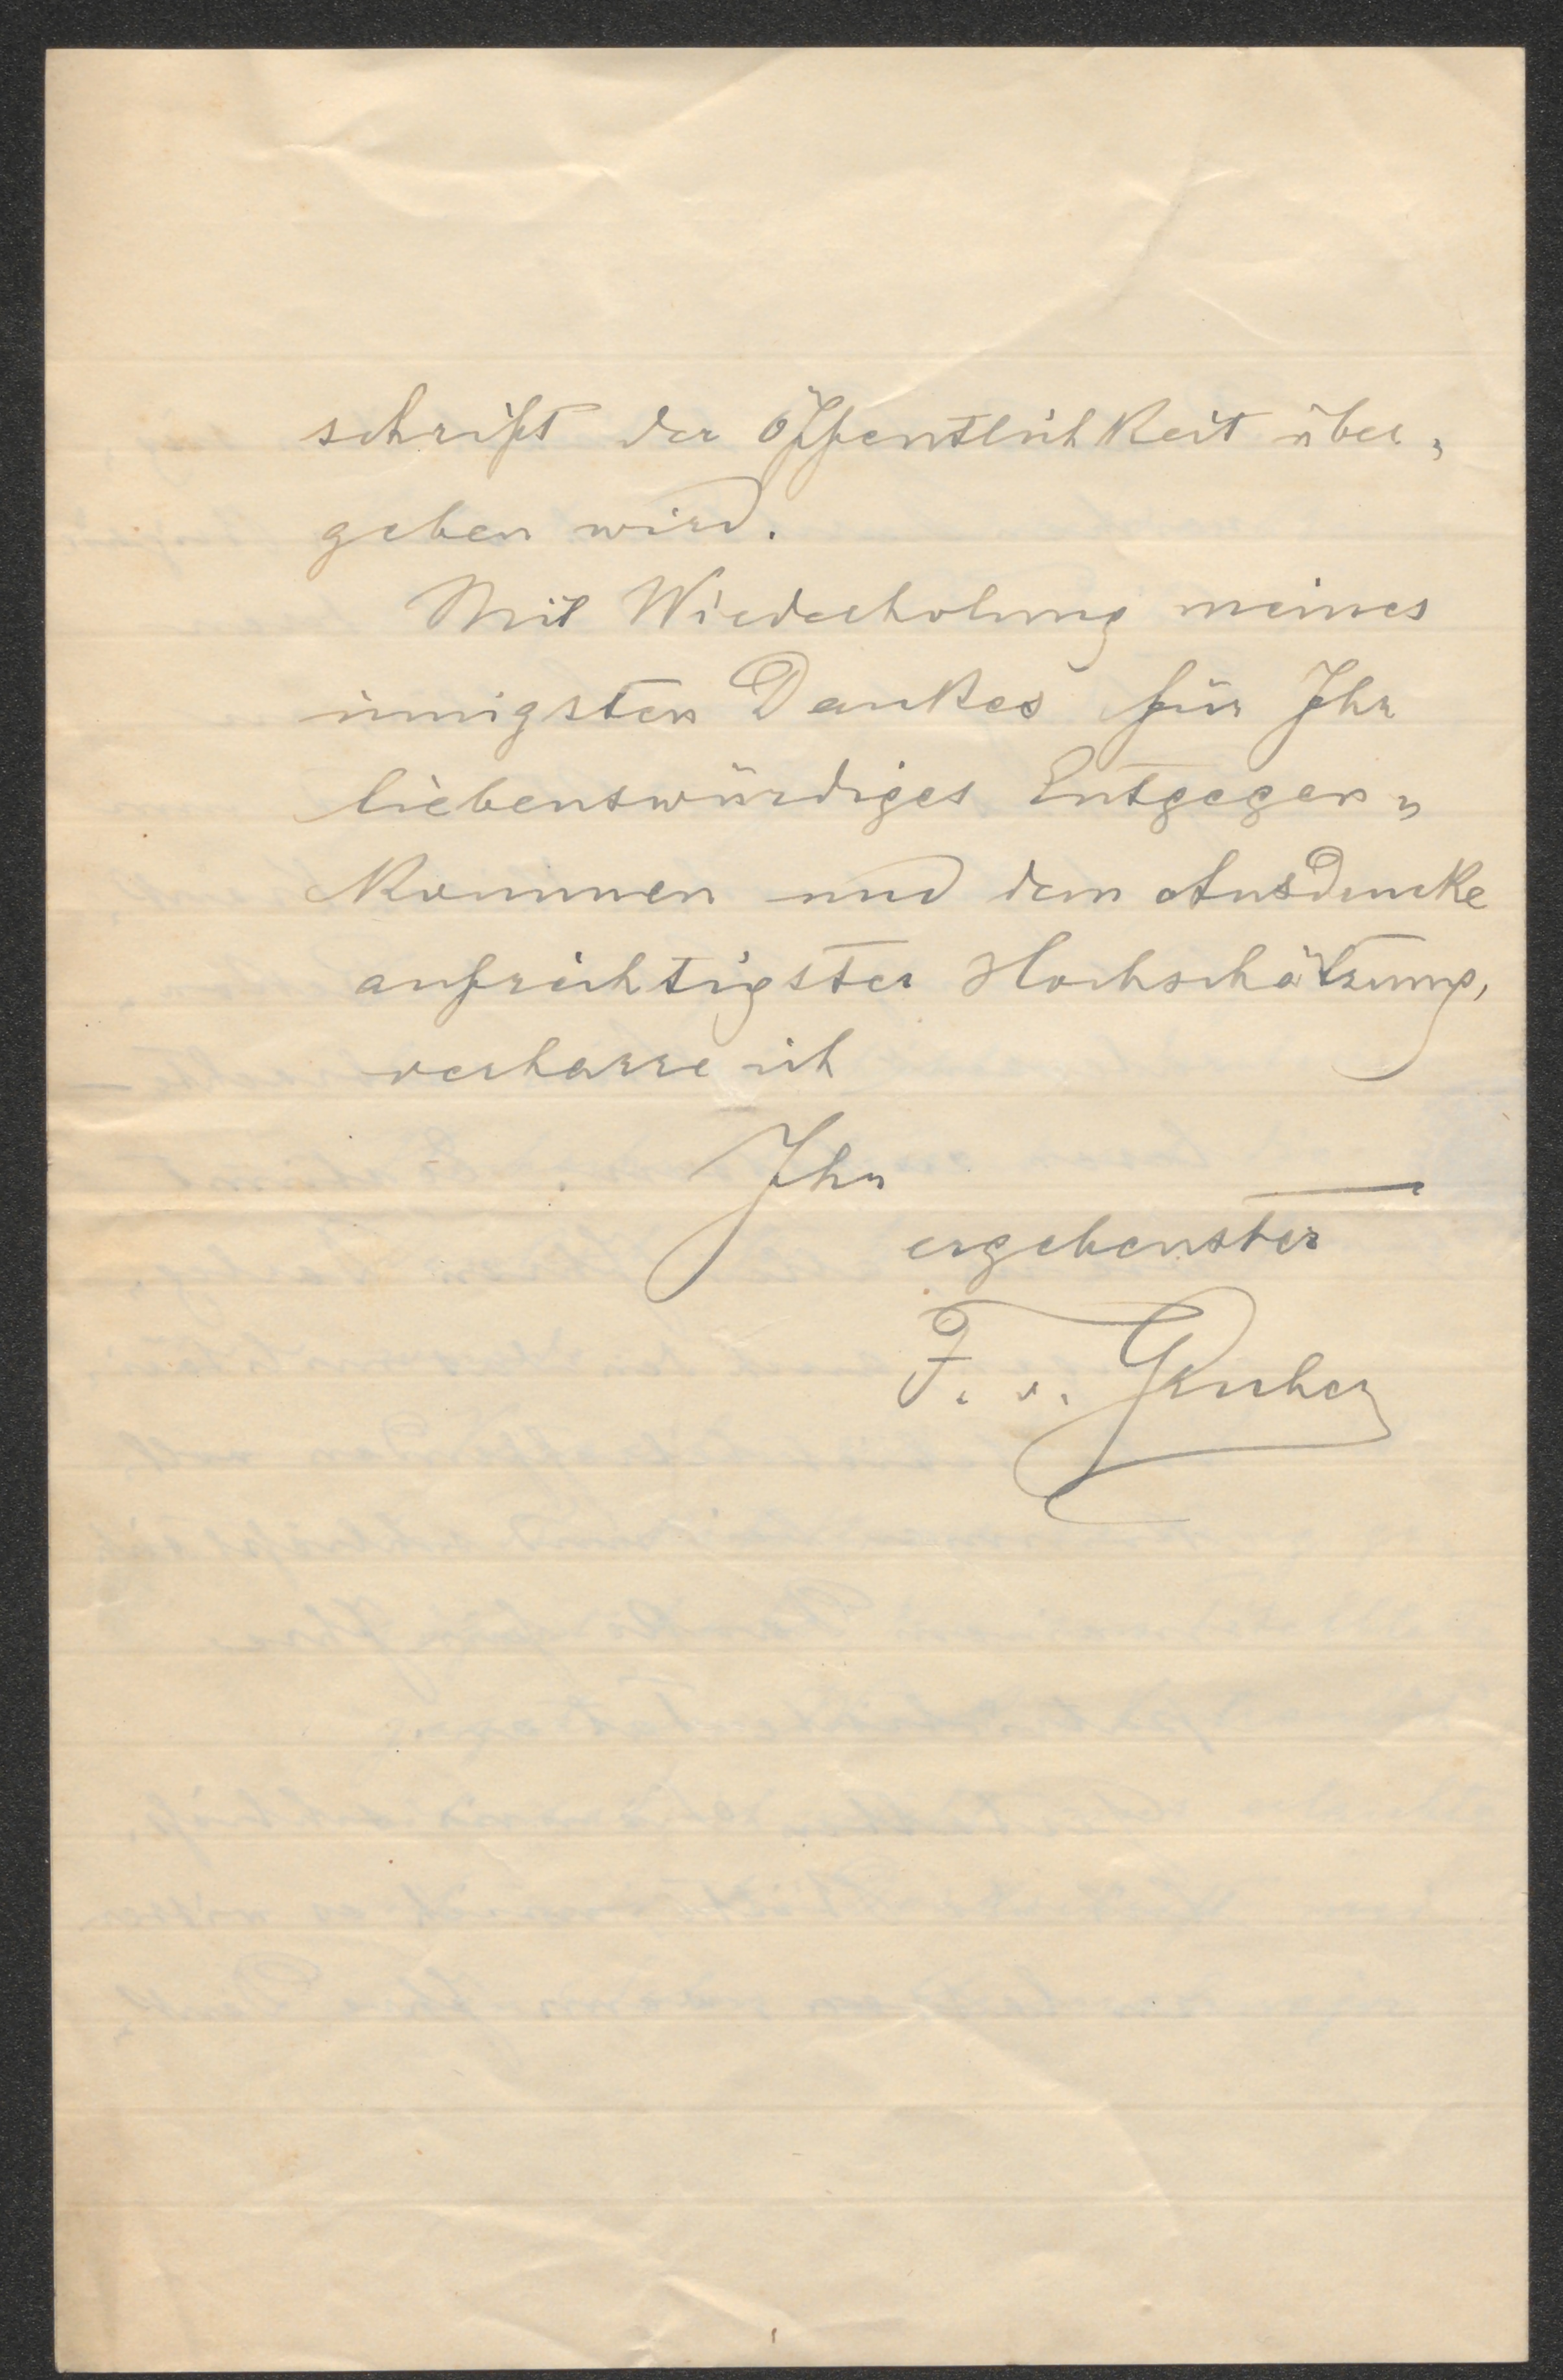 schrift der Öffentlichkeit über„
geben wird.
Mit Wiederholung meines
innigsten Dankes für Ihr
liebenswürdiges Entgegen„
kommen und dem Ausdrucke
aufrichtigster Hochschätzung,
verharre ich
Ihr
ergebenster
F. v. Gruber